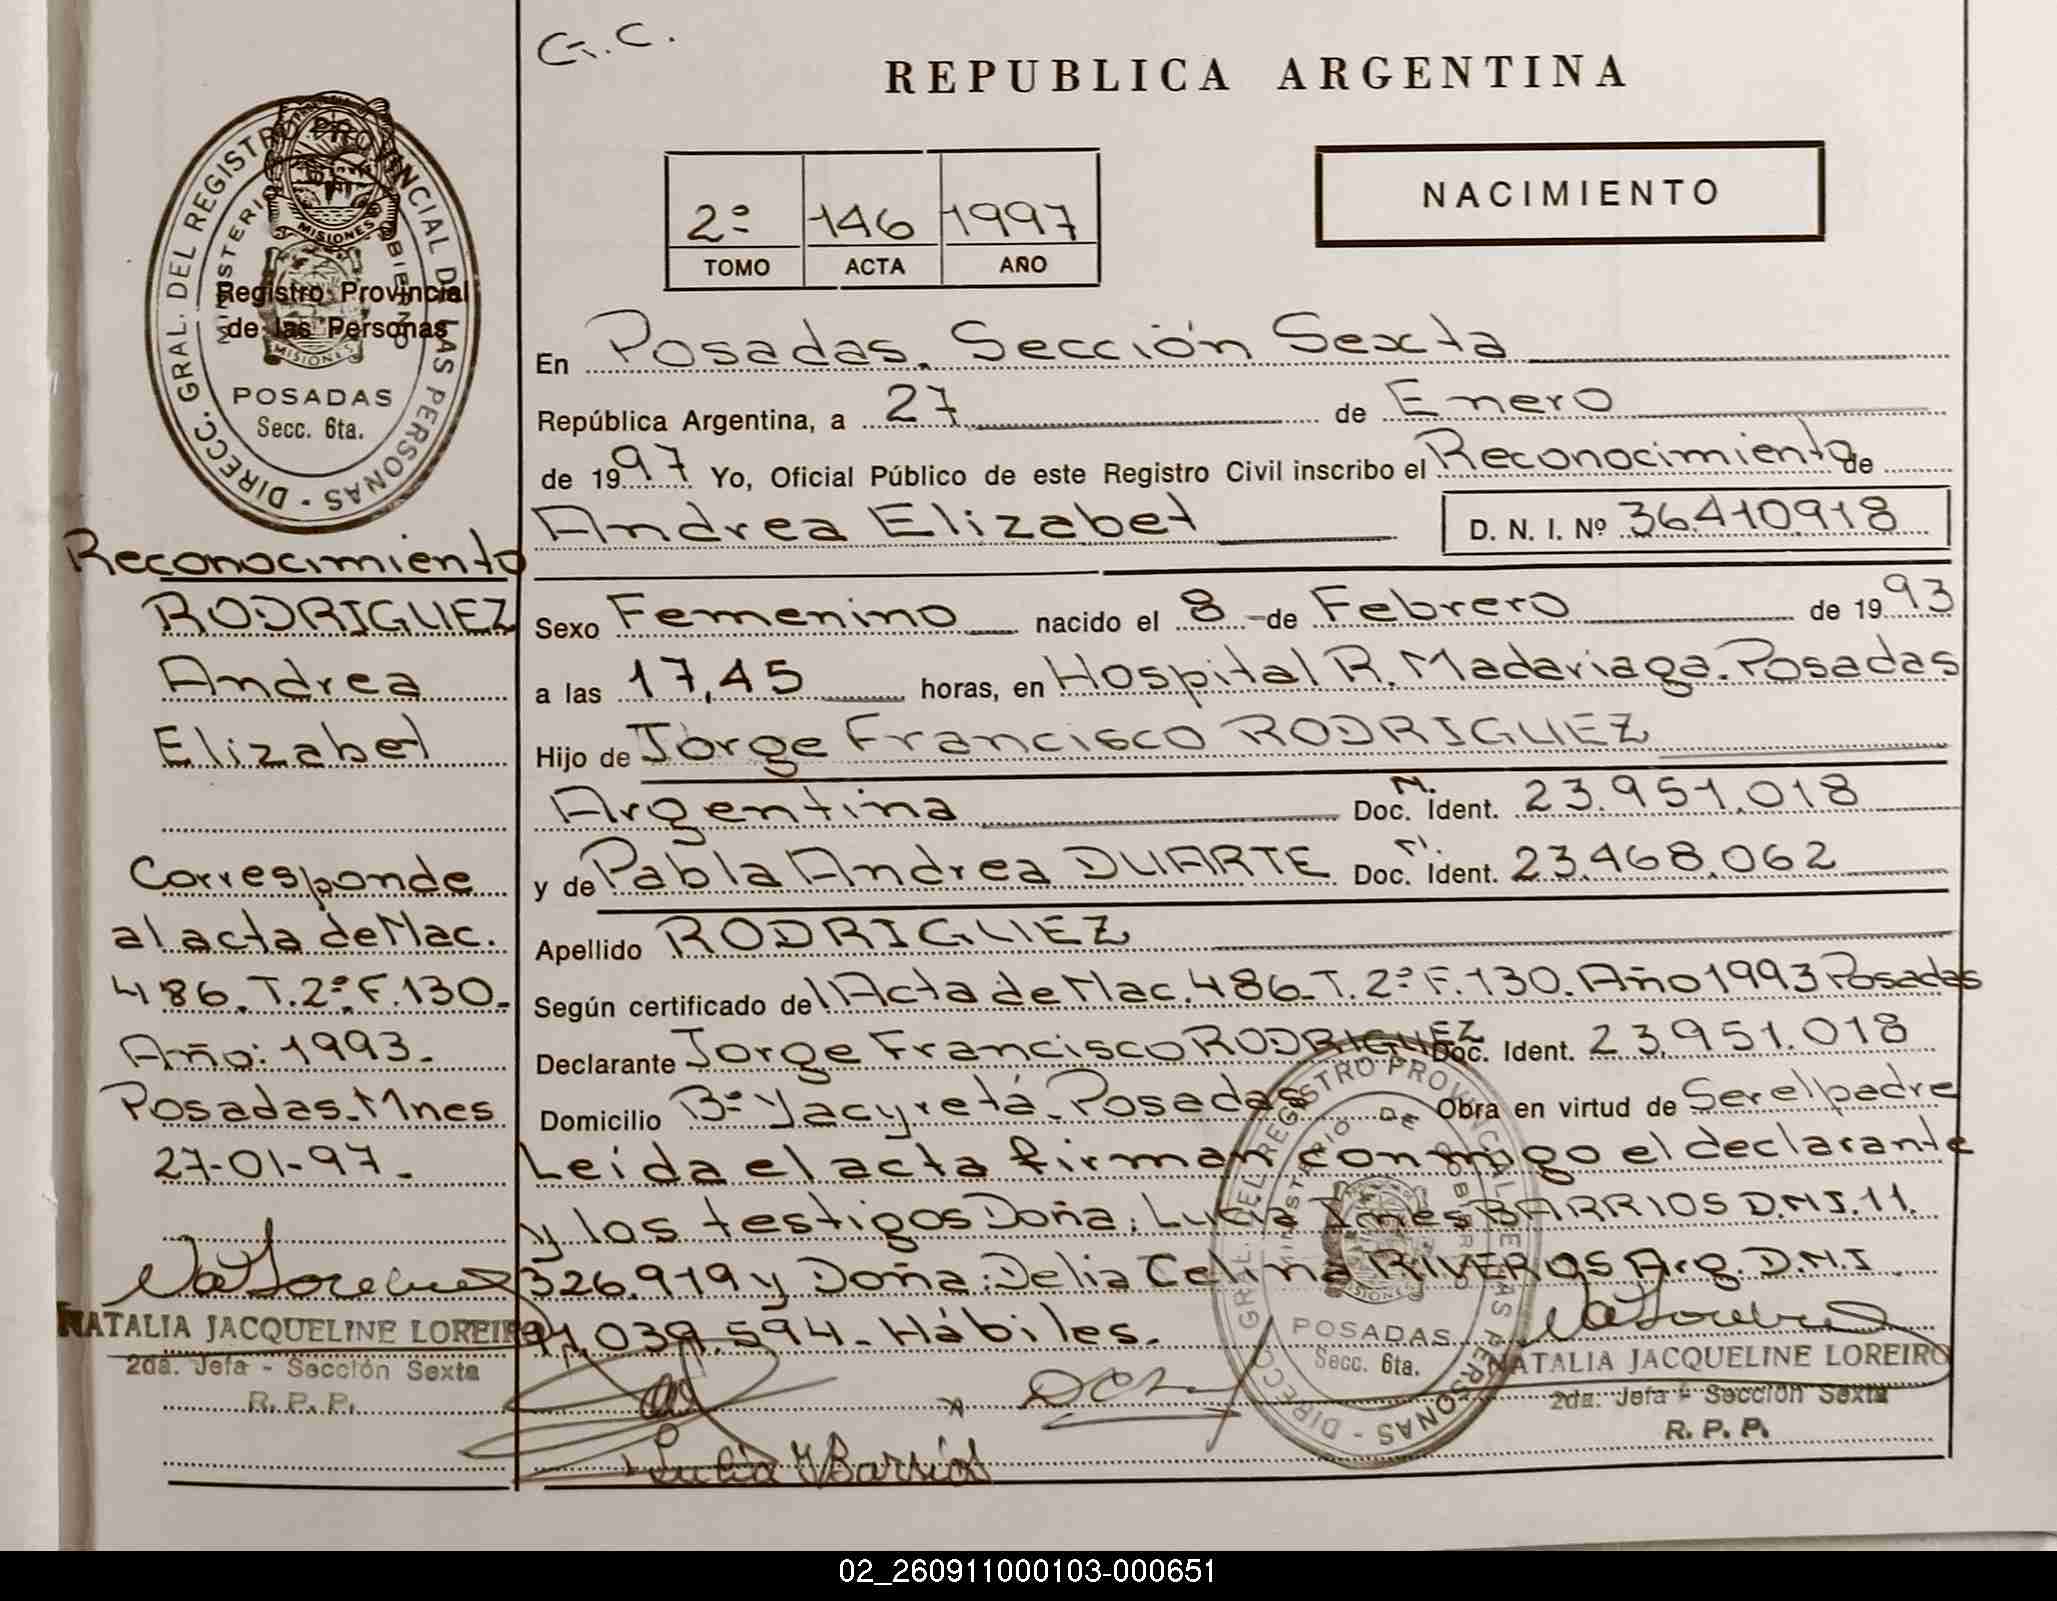 G.C.
REPUBLICA ARGENTINA
NACIMIENTO
2º 146 1997
TOMO ACTA AÑO
DIRECC. GRAL. DEL REGISTRO PROVINCIAL DE LAS PERSONAS
MINISTERIO DE GOBIERNO
MISIONES
Registro Provincial
de las Personas
MISIONES
POSADAS
Secc. 6ta.
Reconocimiento
RODRIGUEZ
Andrea
Elizabet
Corresponde
al acta de Nac.
486. T. 2º. F. 130.
Año: 1993.
Posadas. Mnes
27-01-97.
NATALIA JACQUELINE LOREIRO
2da. Jefa - Sección Sexta
R. P. P.
En Posadas. Sección Sexta
República Argentina, a 27 de Enero
de 1997 Yo, Oficial Público de este Registro Civil inscribo el Reconocimiento de
Andrea Elizabet D. N. I. Nº 36.410.918
Sexo Femenino nacido el 8 de Febrero de 1993
a las 17,45 horas, en Hospital R. Madariaga. Posadas
Hijo de Jorge Francisco RODRIGUEZ
Argentina Doc. N. Ident. 23.951.018
y de Pabla Andrea DUARTE Doc. N. Ident. 23.468.062
Apellido RODRIGUEZ
Según certificado de l Acta de Nac. 486. T. 2º F. 130. Año 1993 Posadas
Declarante Jorge Francisco RODRIGUEZ Doc. Ident. 23.951.018
Domicilio Bº Yacyretá. Posadas Obra en virtud de Ser el padre
Leída el acta firman conmigo el declarante
y los testigos Doña: Lucia Ines BARRIOS D.N.I. 11.
326.919 y Doña: Delia Celina RIVEROS Arg. D.N.I
11.039.594. Hábiles.
DIRECC. GRAL. DEL REGISTRO PROVINCIAL DE LAS PERSONAS
MINISTERIO DE GOBIERNO
MISIONES
POSADAS
Secc. 6ta.
NATALIA JACQUELINE LOREIRO
2da. Jefa - Sección Sexta
R. P. P.
Lucia I Barrios
02_260911000103-000651